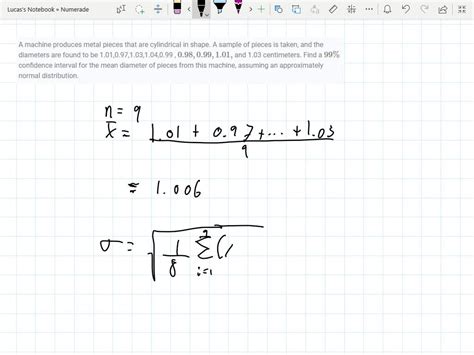 Lucas's Notebook » Numerade
A machine produces metal pieces that are cylindrical in shape. A sample of pieces is taken, and the
diameters are found to be 1.01,0.97,1.03,1.04,0.99 , 0.98, 0.99, 1.01, and 1.03 centimeters. Find a 99%
confidence interval for the mean diameter of pieces from this machine, assuming an approximately
normal distribution.
n = 9
x̄ = 1.01 + 0.97 + ... + 1.03
9
= 1.006
σ = √ 1/8 Σ i=1 (